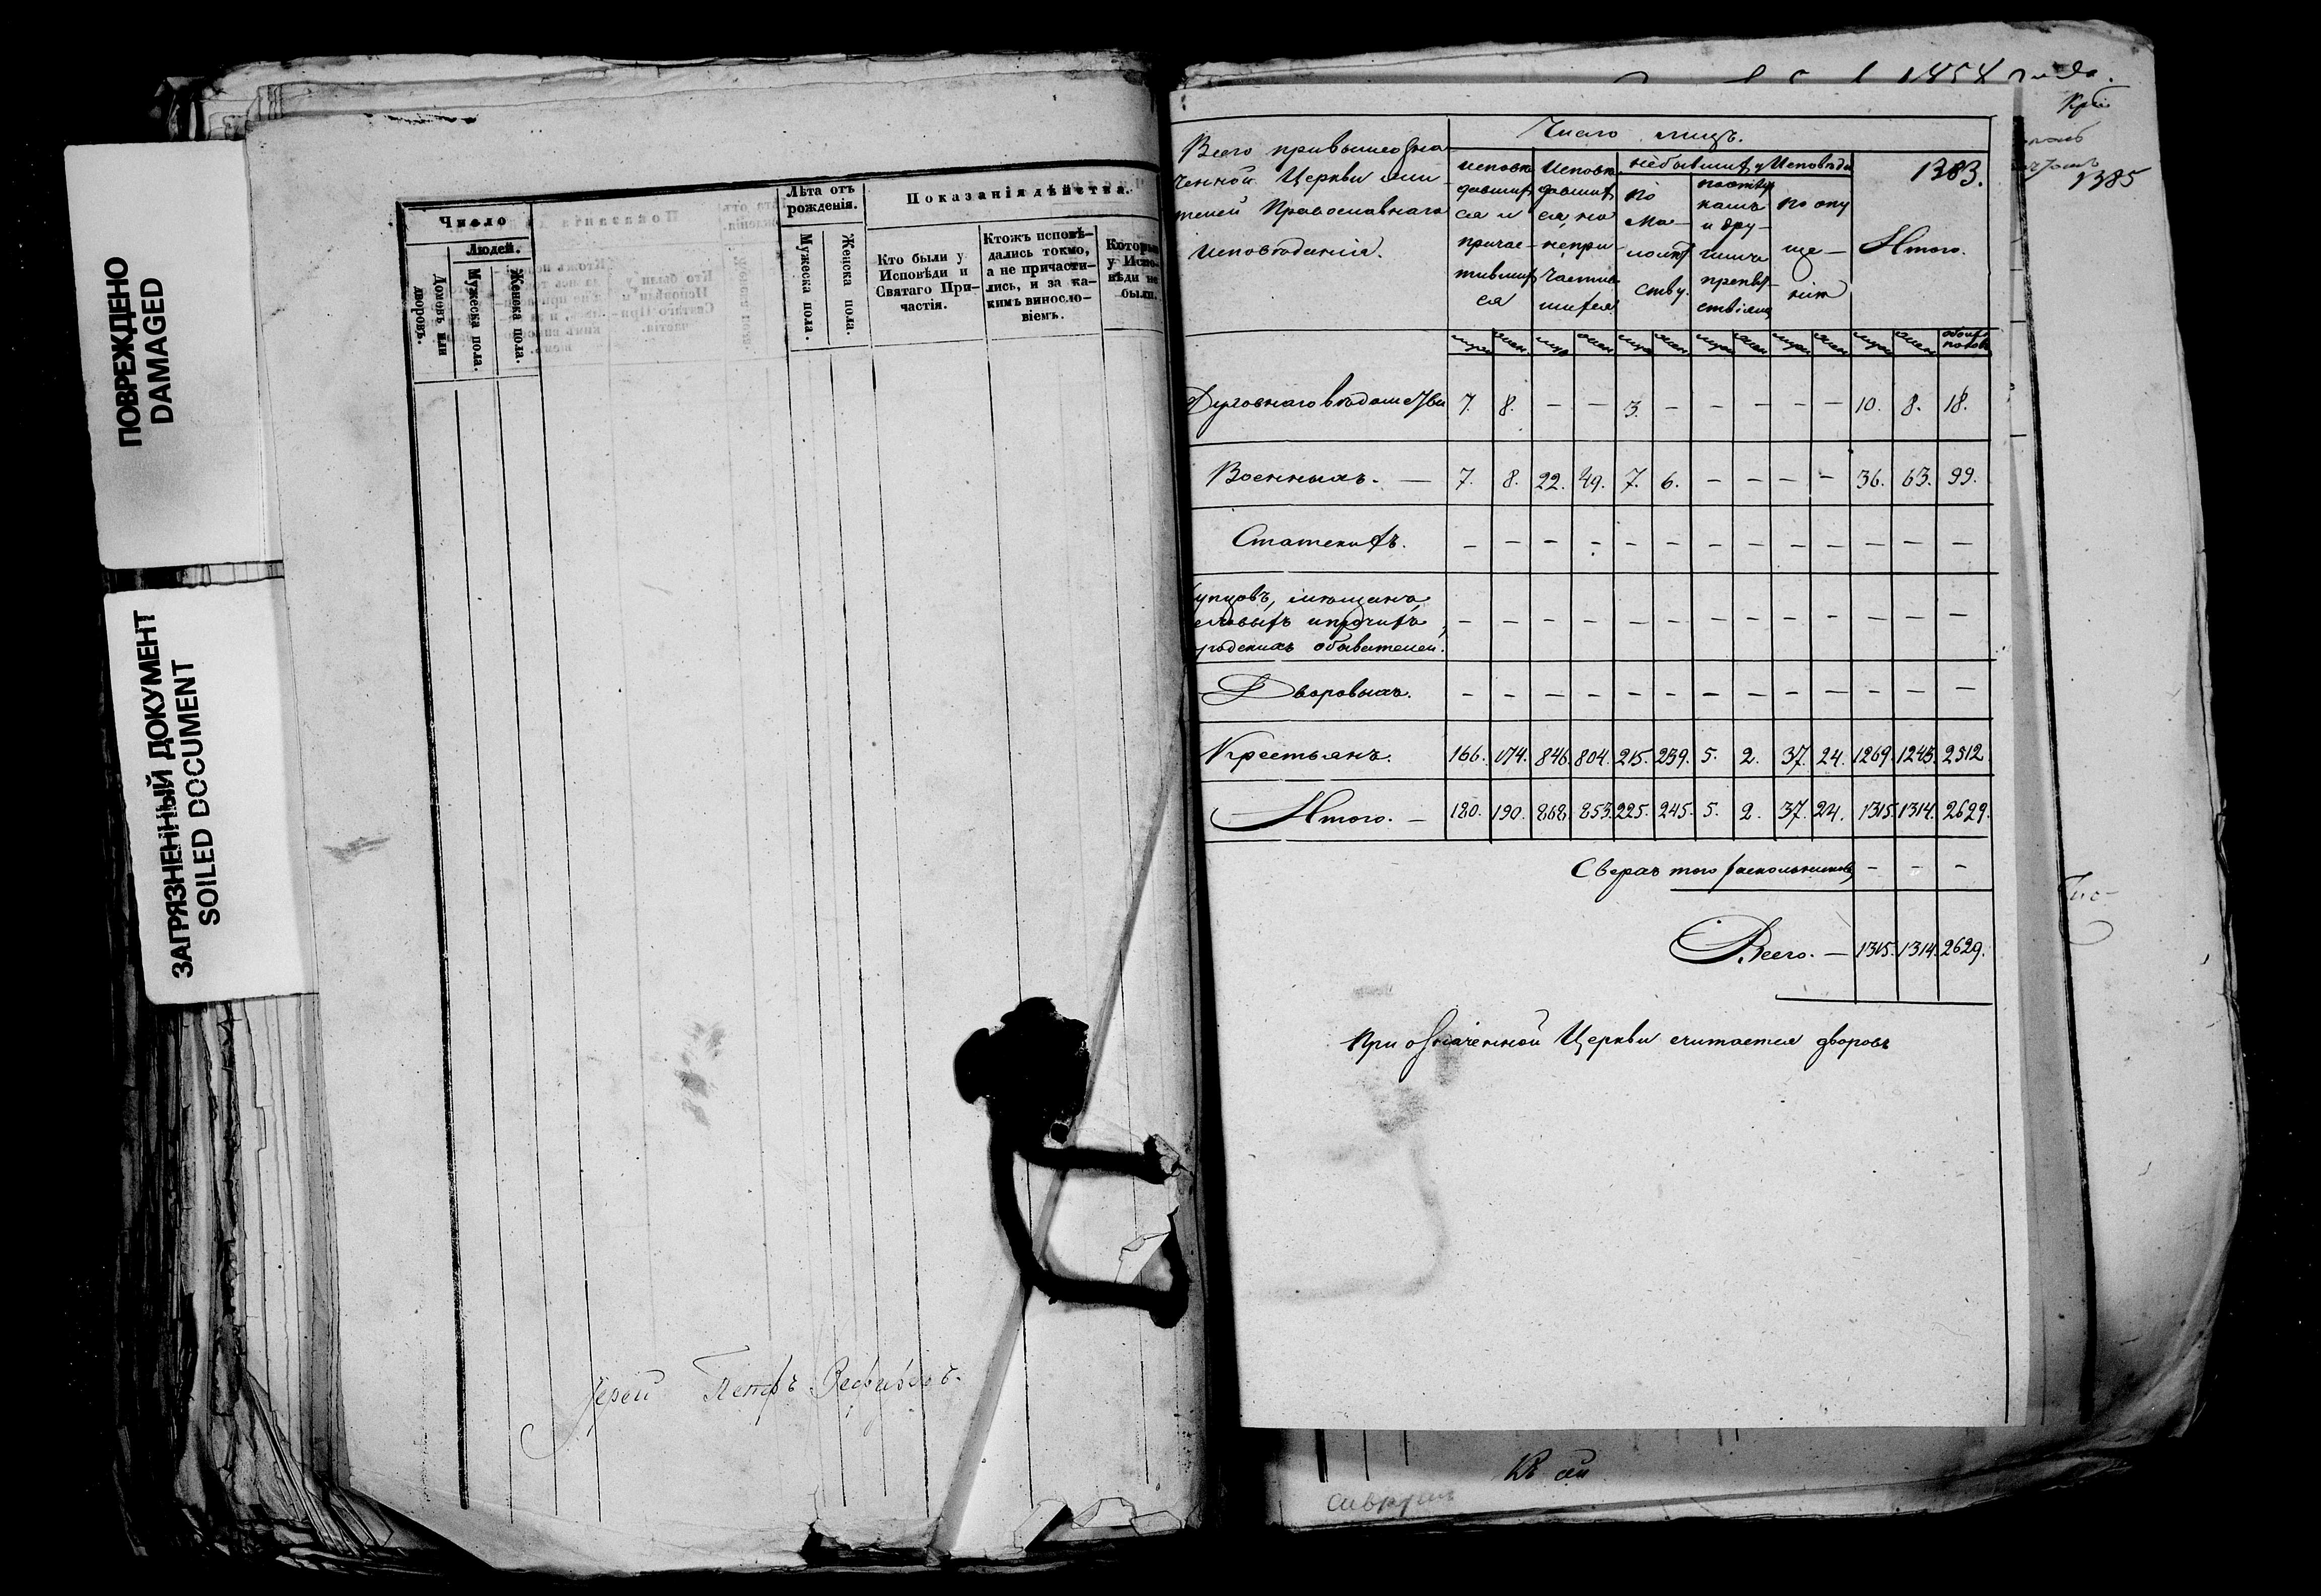 ПОВРЕЖДЕНО
DAMAGED
ЗАГРЯЗНЕННЫЙ ДОКУМЕНТ
SOILED DOCUMENT
Число
Людей.
Домовъ или дворовъ.
Мужеска пола.
Женска пола.
Лѣта отъ рожденія.
Мужеска пола.
Женска пола.
Показанія дѣйства.
Кто были у
Исповѣди и
Святаго При-
частія.
Ктожъ исповѣ-
дались токмо,
а не причасти-
лись, и за ка-
кимъ виносло-
віемъ.
Которые
у Испо-
вѣди не
были.
Іерей Петръ
1854 года.
1385
Всего привышеозна
ченной Церкви жи-
телей Православнаго
исповѣданія.
Число лицъ.
исповѣ
давших
ся и
причас-
тивших
ся
Исповѣ
давших
ся но
непри-
частив
шихся
небывших у Исповѣди
по
ма-
лолѣт
ству.
по отлуч
камъ
и дру-
гимъ
препят-
ствіямъ
по опу
ще-
нію
1383.
Итого.
муж жен. муж жен муж жен муж жен муж жен муж жен обоихъ половъ
Духовнаго вѣдомства 7. 8. — — 3. — — — — — 10. 8. 18.
Военныхъ. — 7. 8. 22. 49. 7. 6. — — — — 36. 63. 99.
Статскихъ. — — — — — — — — — — — — —
упцовъ, мѣщанъ,
еховыхъ и прочихъ — — — — — — — — — — — — —
родскихъ обывателей.
Дворовыхъ. — — — — — — — — — — — — —
Крестьянъ. 166. 174. 846. 804. 215. 239. 5. 2. 37. 24. 1269. 1243. 2512.
Итого. — 180. 190. 868. 853. 225. 245. 5. 2. 37. 24. 1315. 1314. 2629.
Сверхъ того раскольниковъ — — —
Всего. — 1315. 1314. 2629.
При означенной Церкви считается дворовъ